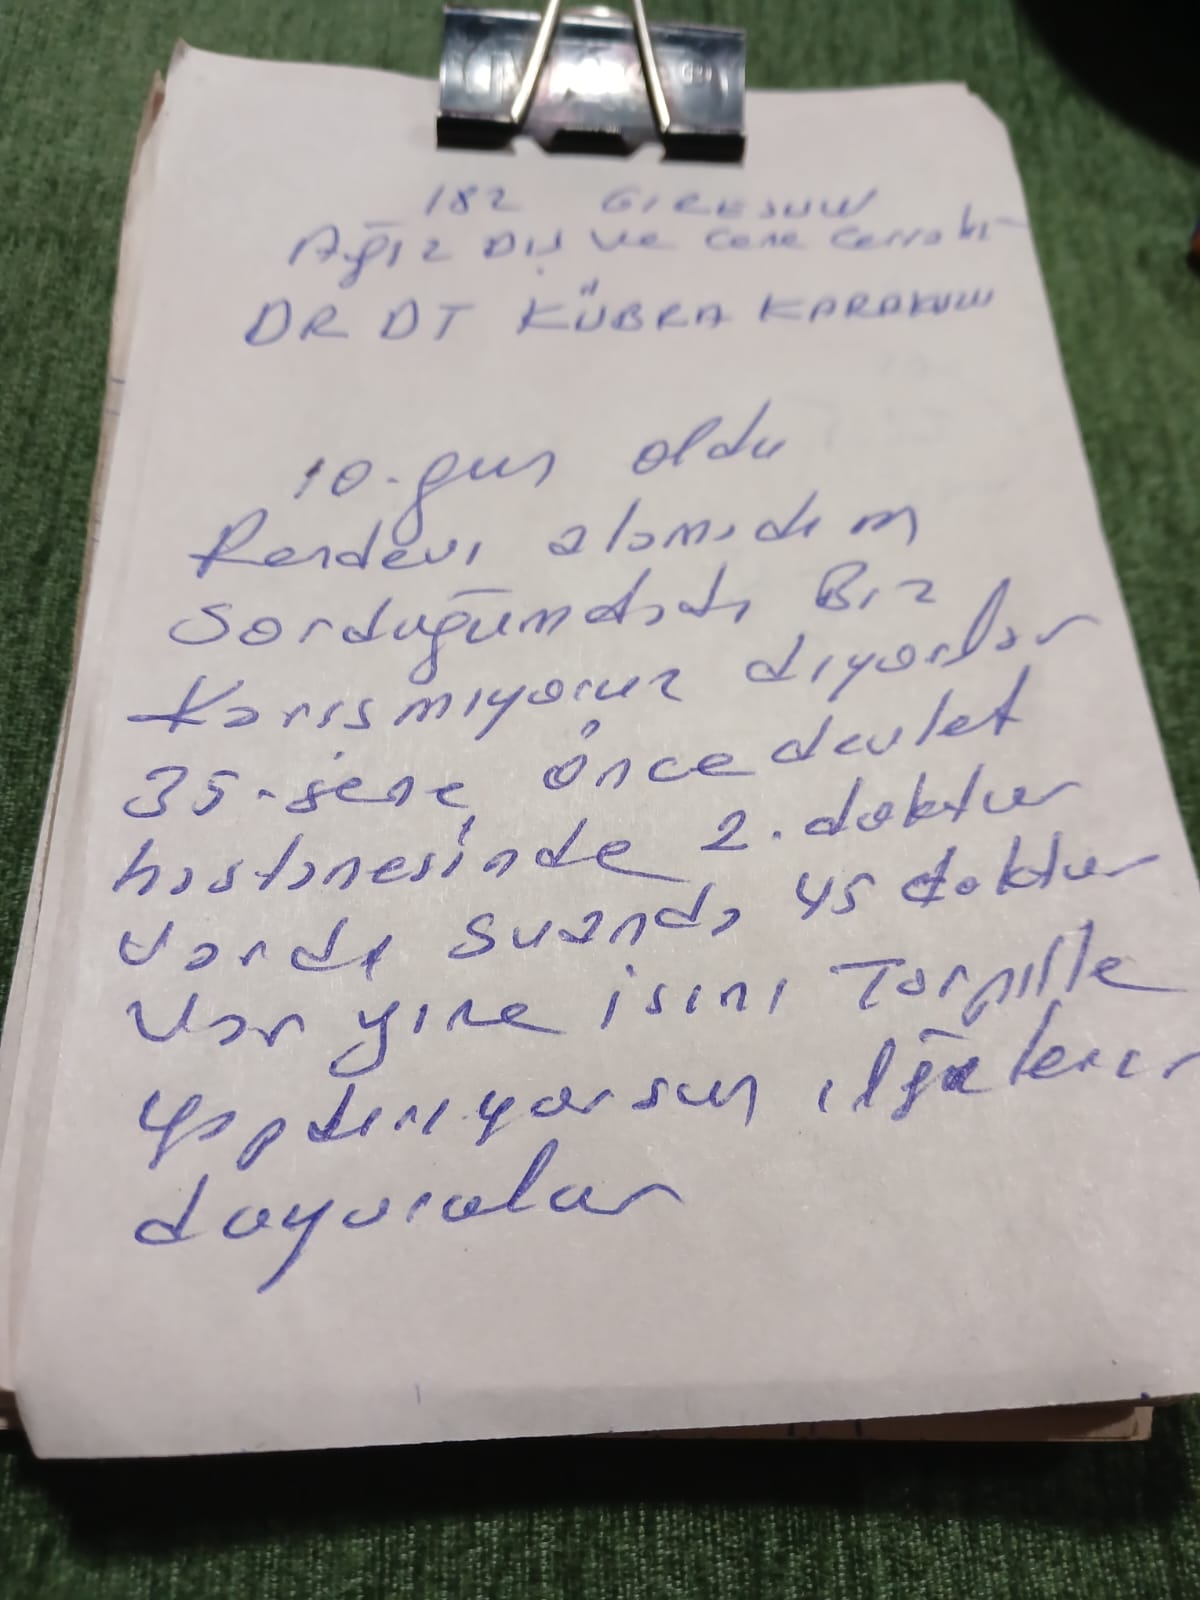 182 GIRESUN
Ağız Diş ve Cene Cerrahi
DR DT KÜBRA KARAKUM
10.gun oldu
Randevı alamadım
Sorduğumdada Bız
Karısmıyoruz dıyorlar
35.sene önce devlet
hastanesinde 2.doktur
Vardı suanda 45 doktur
Var yıne isını Torpılle
yaptırıyorsun ılğılenır
duyurular